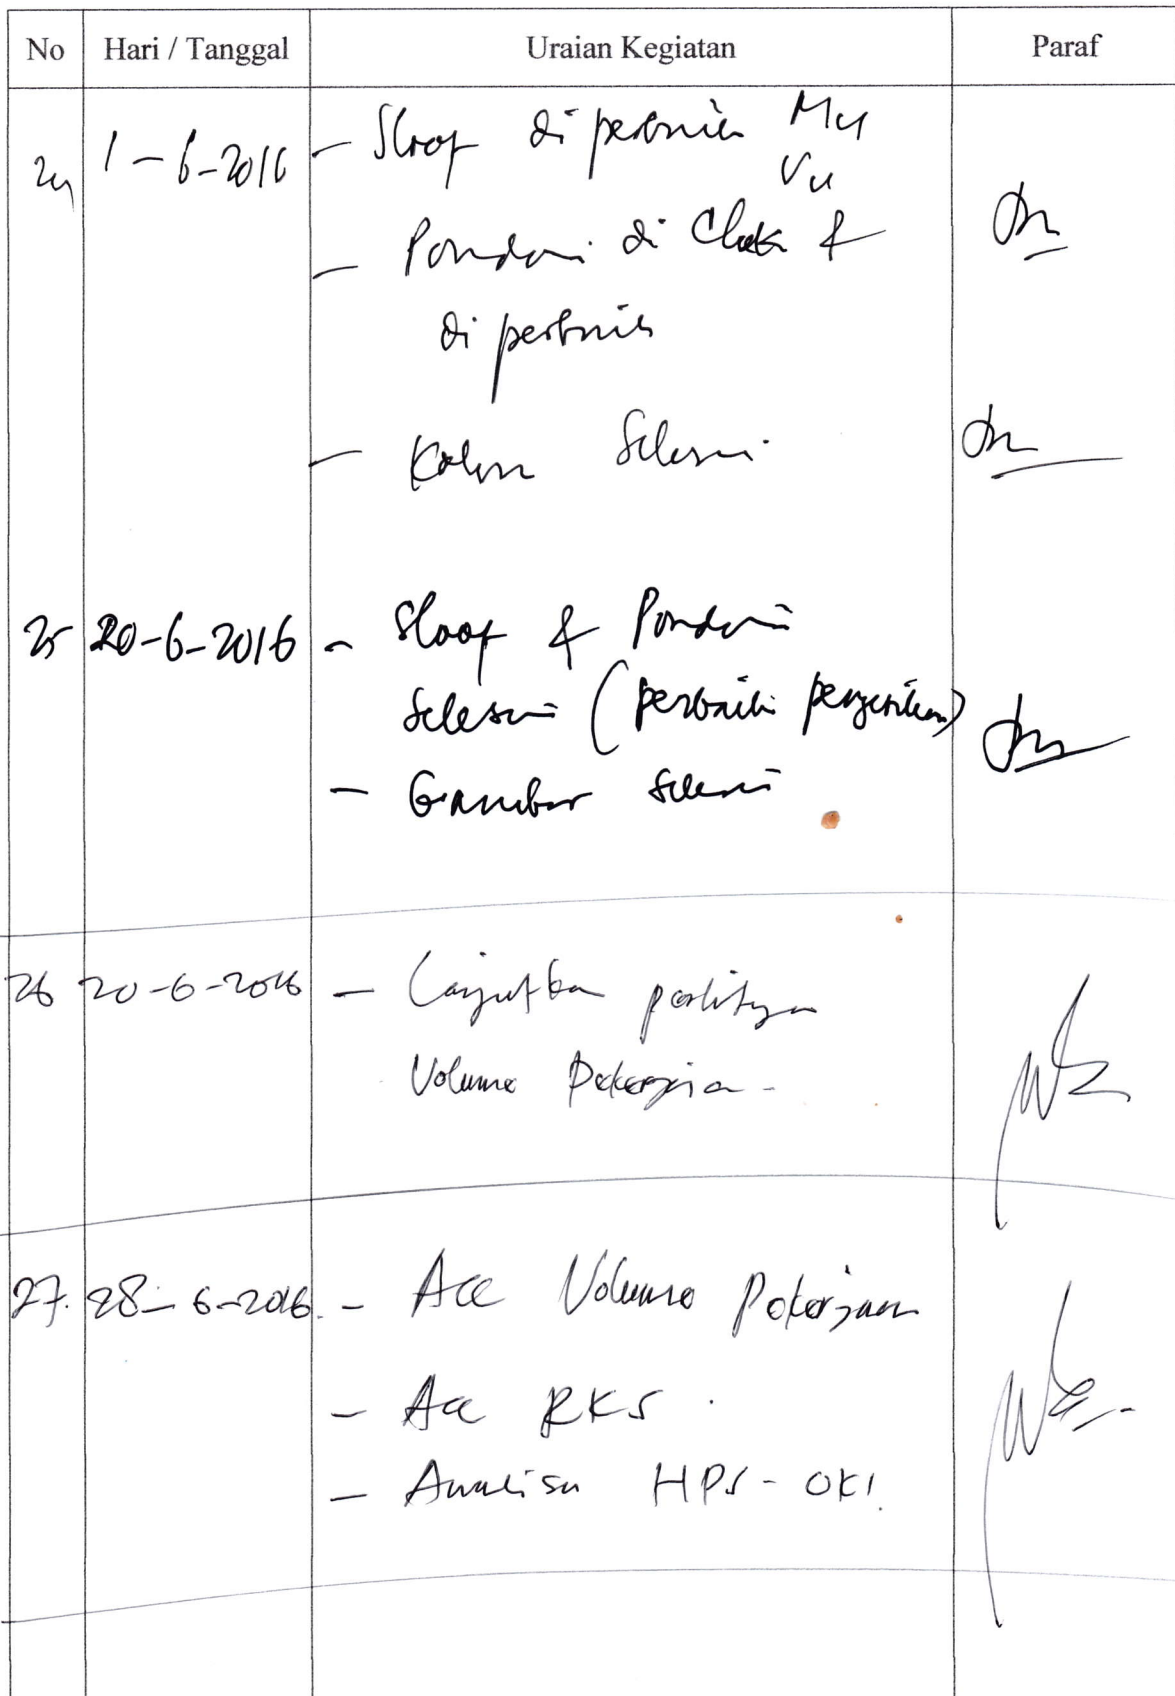 No Hari / Tanggal Uraian Kegiatan Paraf
24 1-6-2016 - Sloof diperbaiki Mu
Vu
- Pondasi di Chek &
diperbaiki
- Kolom Selesai.
25 20-6-2016 - Sloof & Pondasi
Selesai (perbaiki pengetikan)
- Gambar Selesai
26 20-6-2016 - Lanjutkan
Volume Pekerjaan -
27. 28-6-2016. - Acc Volume Pekerjaan
- Acc RKS.
- Analisa HPS - OKI